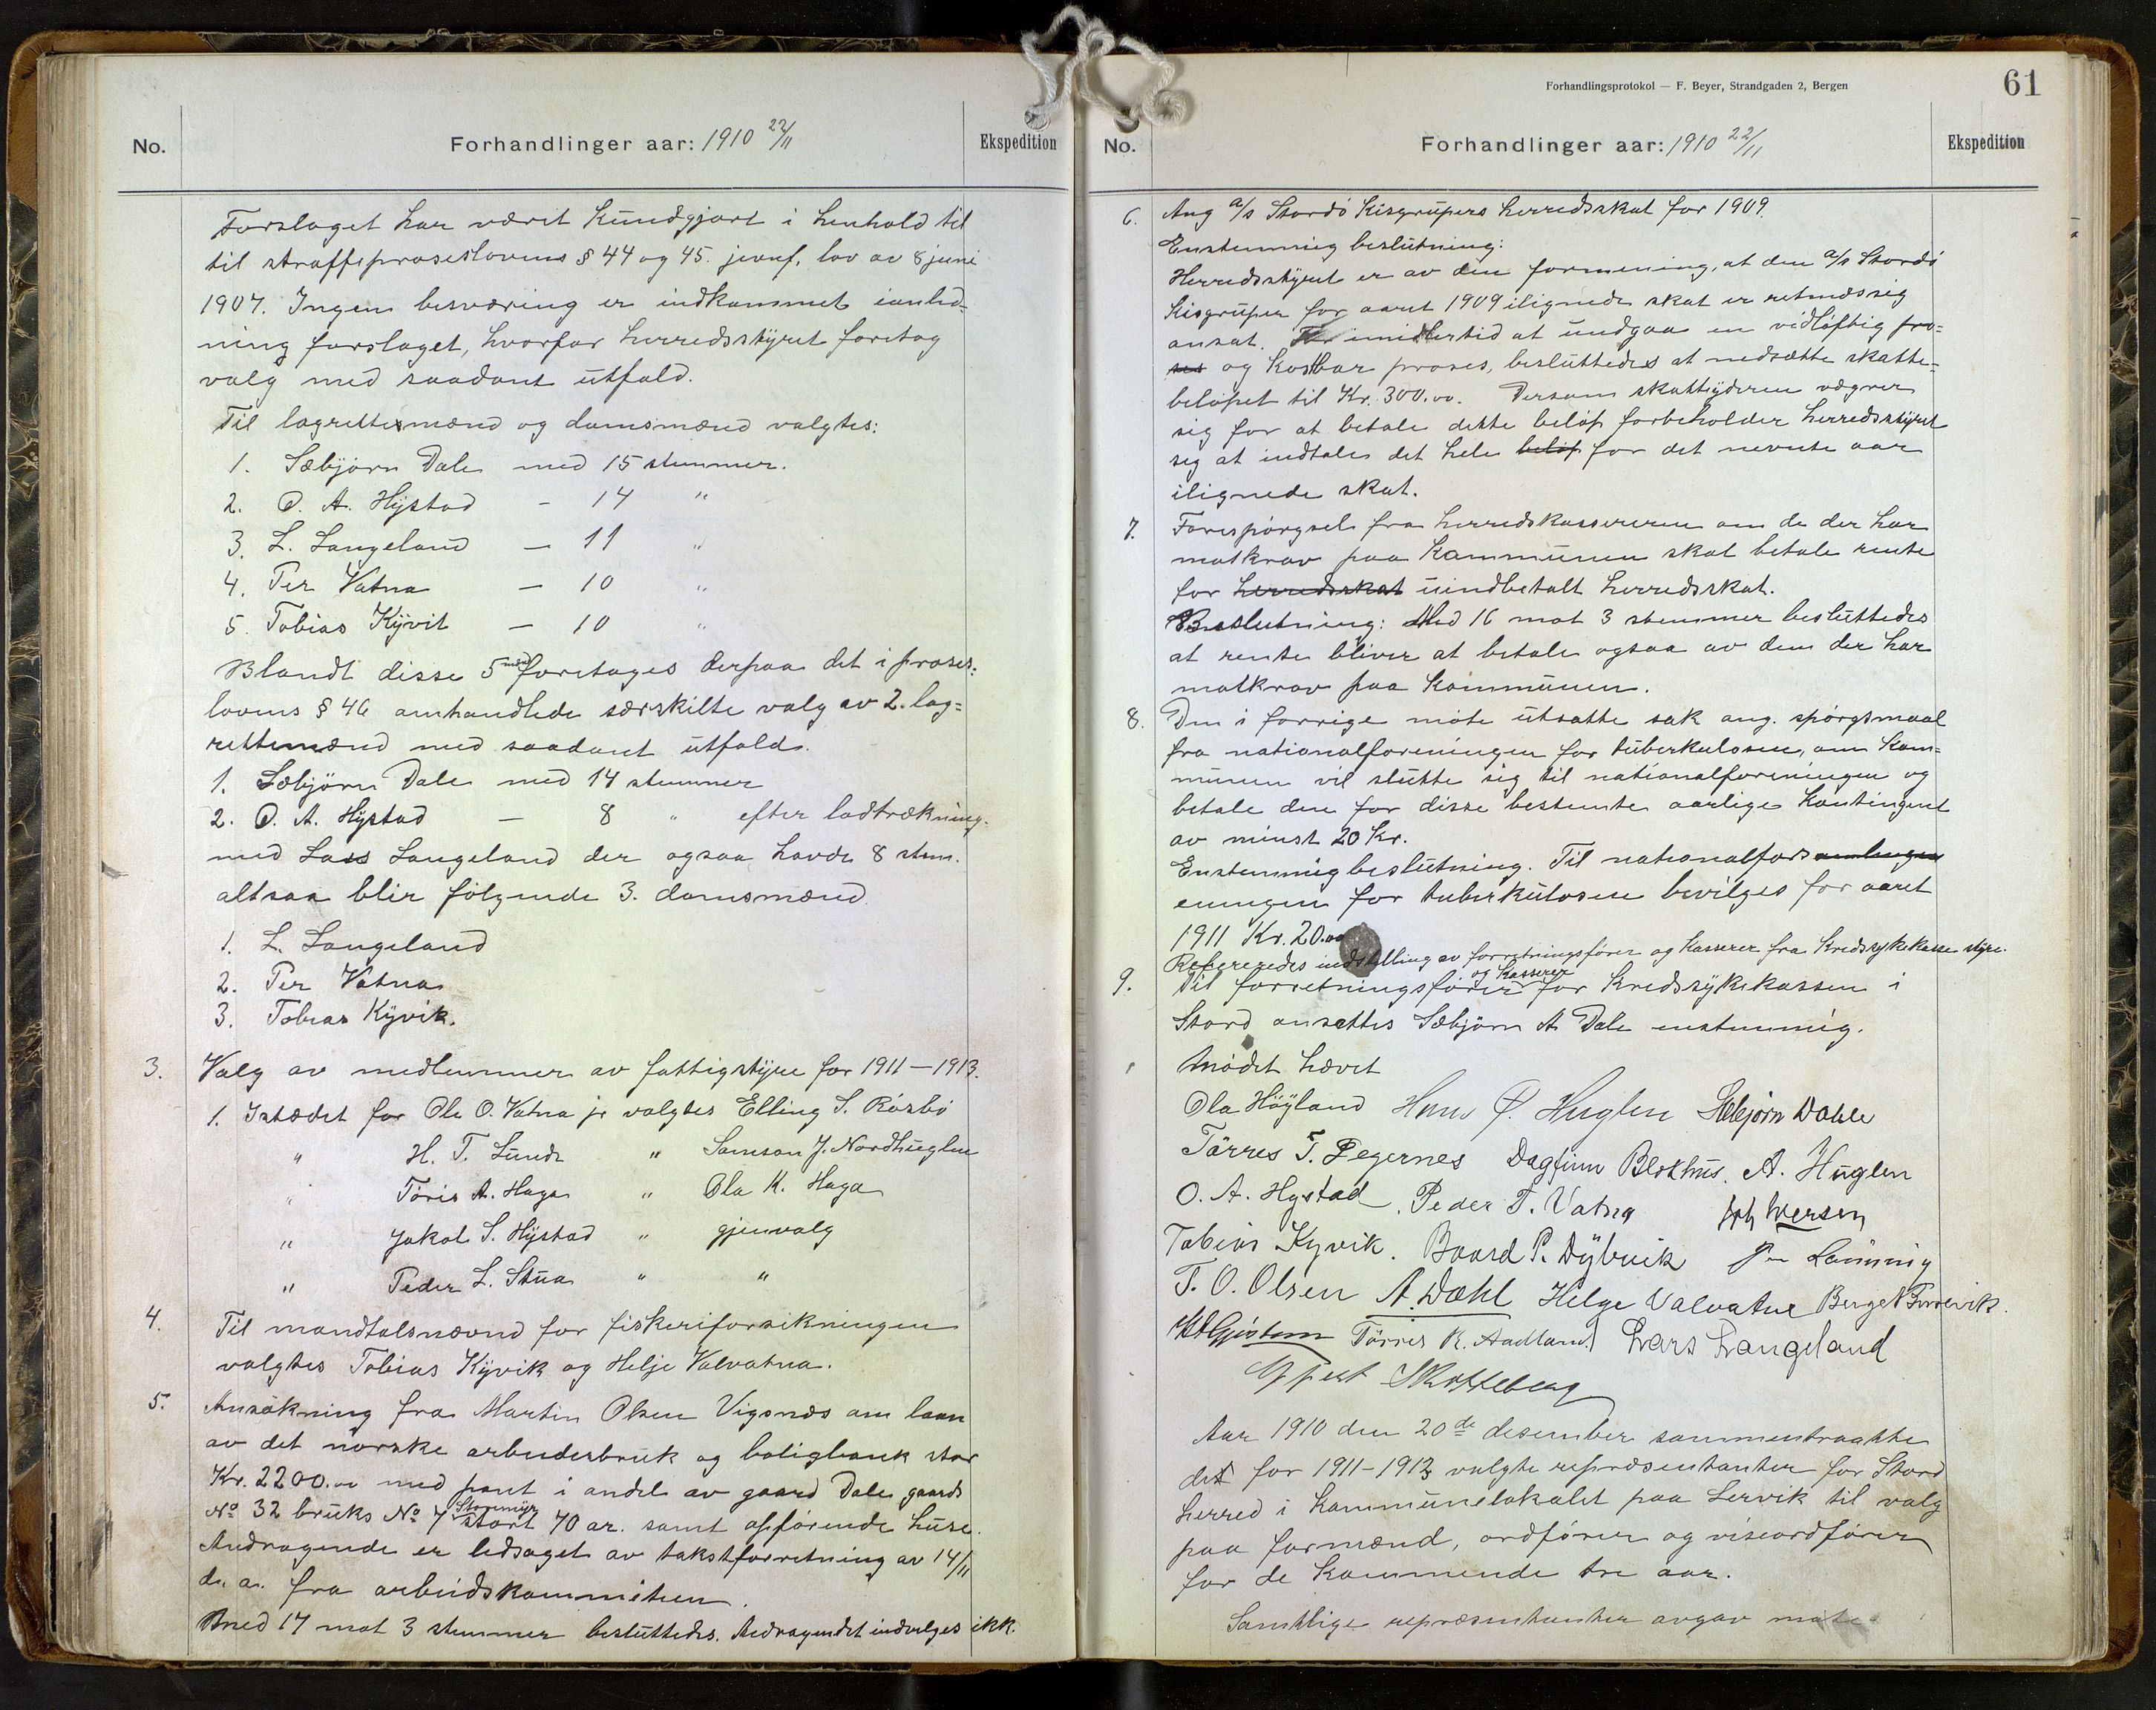 No.
Forhandlinger aar: 1910 22/11
Ekspedition
Forslaget har været kundgjort i henhold til
til straffeproseslovens § 44 og 45. jevnf. lov av 8 juni
1907. Ingen besværing er indkommet ianled-
ning forslaget, hvorfor herredsstyret foretog
valg med saadant utfald.
Til lagrettesmænd og domsmænd valgtes:
1. Sæbjörn Dale med 15 stemmer.
2. O. A. Hystad - 14 "
3. L. Langeland — 11 "
4. Per Vatna — 10 "
5. Tobias Kyvik — 10 "
Blandt disse 5 mænd foretages derpaa det i proses-
lovens § 46 omhandlede særskilte valg av 2. lag-
rettemænd med saadant utfald.
1. Sæbjörn Dale med 14 stemmer
2. O. A. Hystad — 8 " efter lodtrækning.
med Lars Langeland der ogsaa havde 8 stem.
altsaa blir følgende 3. domsmænd
1. L. Langeland
2. Per Vatna
3. Tobias Kyvik.
3. Valg av medlemmer av fattigstyre for 1911—1913.
1. Istædet for Ole O. Vatna jr valgtes Elling S. Rösbö
" H. T. Lunde " Samson J. Nordhuglen
" Töris A. Haga " Ola K. Haga
" Jakob S. Hystad " gjenvalg
" Peder L. Stua " "
4. Til mandtalsnævnd for fiskeriforsikningen
valgtes Tobias Kyvik og Helje Valvatna.
5. Ansökning fra Martin Olsen Vigsnæs om laan
av det norske arbeiderbruk og boligbank stor
Kr. 2200.00 med pant i andel av gaard Dale gaards
No 32 bruks No 7 Storemyr stort 70 ar. samt opförende huse.
Andragende er ledsaget av takstforretning av 14/11
d. a. fra arbeidskommiteen.
Med 17 mot 3 stemmer besluttedes. Andragendet indvilges ikk.
Forhandlingsprotokol — F. Beyer, Strandgaden 2, Bergen
61
No.
Forhandlinger aar: 1910 22/11
Ekspedition
6. Ang a/s Stordö Kisgrupers herredsskat for 1909.
Enstemmig beslutning:
Herredsstyret er av den formening, at den a/s Stordö
Kisgruper for aaret 1909 ilignede skat er retmæssig
ansat. For imidlertid at undgaa en vidløftig pro-
ses og kostbar proses, besluttedes at nedsætte skatte-
belöpet til Kr. 300.00. Dersom skatteyderen vægrer
sig for at betale dette belöp forbeholder herredsstyret
seg at indtale det hele belöp for det nevnte aar
ilignede skat.
7. Forespörgsel fra herredskassereren om de der har
motkrav paa kommunen skal betale rente
for herredsskat uindbetalt herredsskat.
Beslutning: Med 16 mot 3 stemmer besluttedes
at rente bliver at betale ogsaa av dem der har
motkrav paa kommunen.
8. Den i forrige möte utsatte sak ang. spörgsmaal
fra nationalforeningen for tuberkulosen, om kom-
munen vil slutte sig til nationalforeningen og
betale den for disse bestemte aarlige kontingent
av minst 20 kr.
Enstemmig beslutning. Til nationalforsamlingen
eningen for tuberkulosen bevilges for aaret
1911 Kr. 20.00
Refereredes indstilling av forretningsförer og kasserer fra Kredssykekasse styre.
9. Til forretningsförer og kasserer for Kredssykekassen i
Stord ansættes Sæbjörn A Dale enstemmig.
Mödet hævet
Ola Höyland Hans P. Huglen Sæbjørn Dahle
Törres T. Legernes Dagfinn Blokhus. A. Huglen
O. A. Hystad. Peder T. Vatna Joh Iversen
Tobias Kyvik. Baard P. Dybvik
T. O. Olsen A. Dahl Helge Valvatne
Törres K. Aadland. Lars Langeland
Aar 1910 den 20de desember sammentraatte
det for 1911-1913 valgte repræsentanter for Stord
herred i kommunelokalet paa Lervik til valg
paa formænd, ordförer og viseordförer
for de kommende tre aar.
Samtlige repræsentanter avgav möte